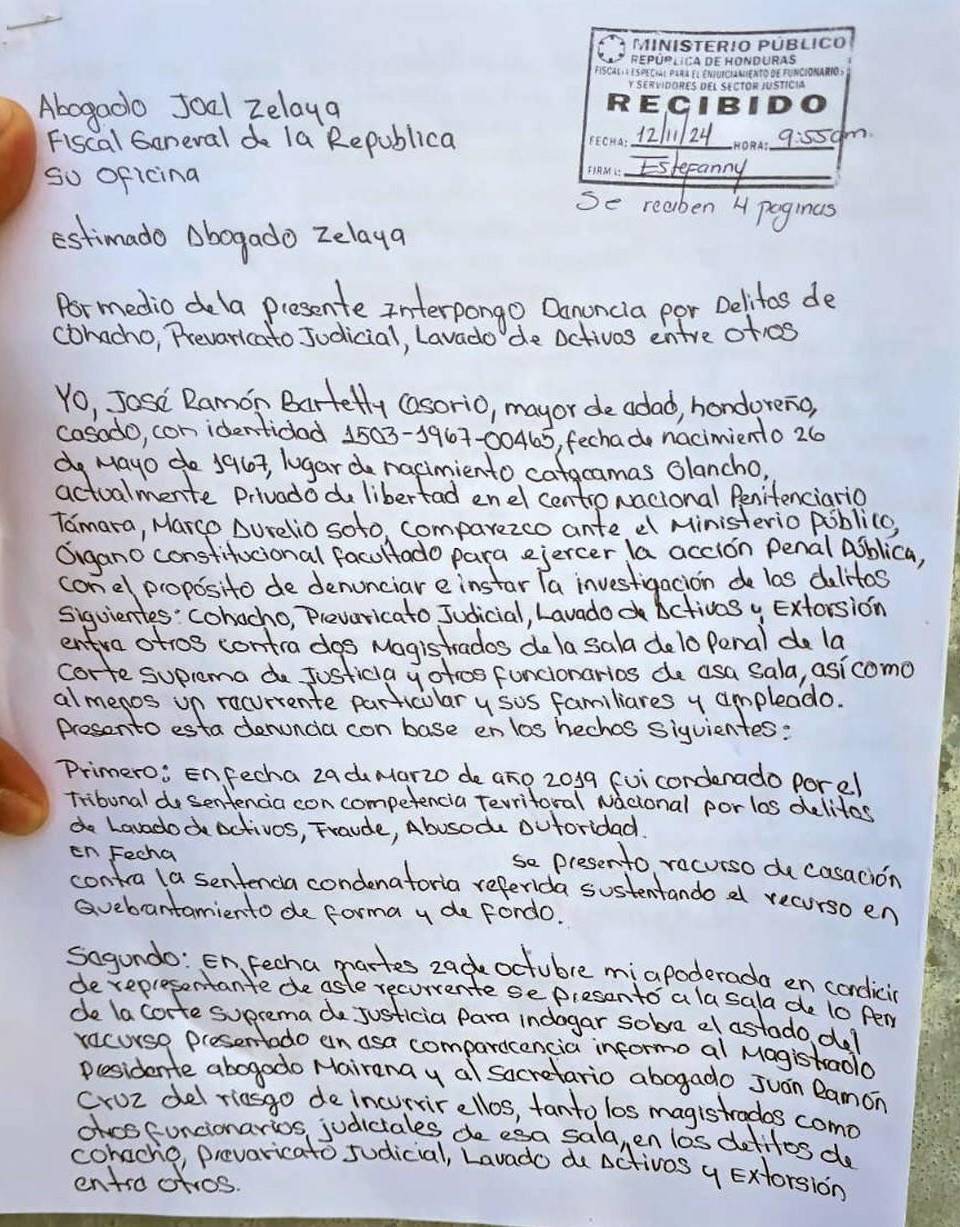 MINISTERIO PÚBLICO
REPÚBLICA DE HONDURAS
FISCALIA ESPECIAL PARA EL ENJUICIAMIENTO DE FUNCIONARIOS
Y SERVIDORES DEL SECTOR JUSTICIA
RECIBIDO
FECHA: 12/11/24 HORA: 9:55am.
FIRMA: Estefanny
Se reciben 4 paginas
Abogado Joel Zelaya
Fiscal General de la Republica
Su Oficina
Estimado Abogado Zelaya
Por medio de la presente Interpongo Denuncia por Delitos de
Cohecho, Prevaricato Judicial, Lavado de Activos entre otros
Yo, José Ramón Bartetty Osorio, mayor de edad, hondureño,
casado, con identidad 1503-1967-00465, fecha de nacimiento 26
de Mayo de 1967, lugar de nacimiento catacamas Olancho,
actualmente Privado de libertad en el Centro Nacional Penitenciario
Támara, Marco Aurelio Soto, Comparezco ante el Ministerio Público,
Órgano constitucional facultado para ejercer la acción Penal Pública,
con el propósito de denunciar e instar la investigación de los delitos
Siguientes: Cohecho, Prevaricato Judicial, Lavado de Activos y Extorsión
entre otros contra dos Magistrados de la Sala de lo Penal de la
Corte Suprema de Justicia y otros funcionarios de esa Sala, así como
al menos un recurrente Particular y sus familiares y empleado.
Presento esta denuncia con base en los hechos Siguientes:
Primero: En fecha 29 de Marzo de año 2019 fui condenado por el
Tribunal de Sentencia con competencia Territoral Nacional por los delitos
de Lavado de Activos, Fraude, Abuso de Autoridad.
En Fecha se presento recurso de casación
contra la sentencia condenatoria referida sustentando el recurso en
Quebrantamiento de forma y de Fondo.
Segundo: En fecha martes 29 de octubre mi apoderada en condicir
de representante de este recurrente se presentó a la sala de lo Pen
de la Corte Suprema de Justicia para indagar sobre el estado del
recurso presentado en esa comparecencia informo al Magistrado
Presidente abogado Mairena y al Secretario abogado Juan Ramón
Cruz del riesgo de incurrir ellos, tanto los magistrados como
otros funcionarios judiciales de esa sala, en los delitos de
Cohecho, Prevaricato Judicial, Lavado de Activos y Extorsión
entre otros.